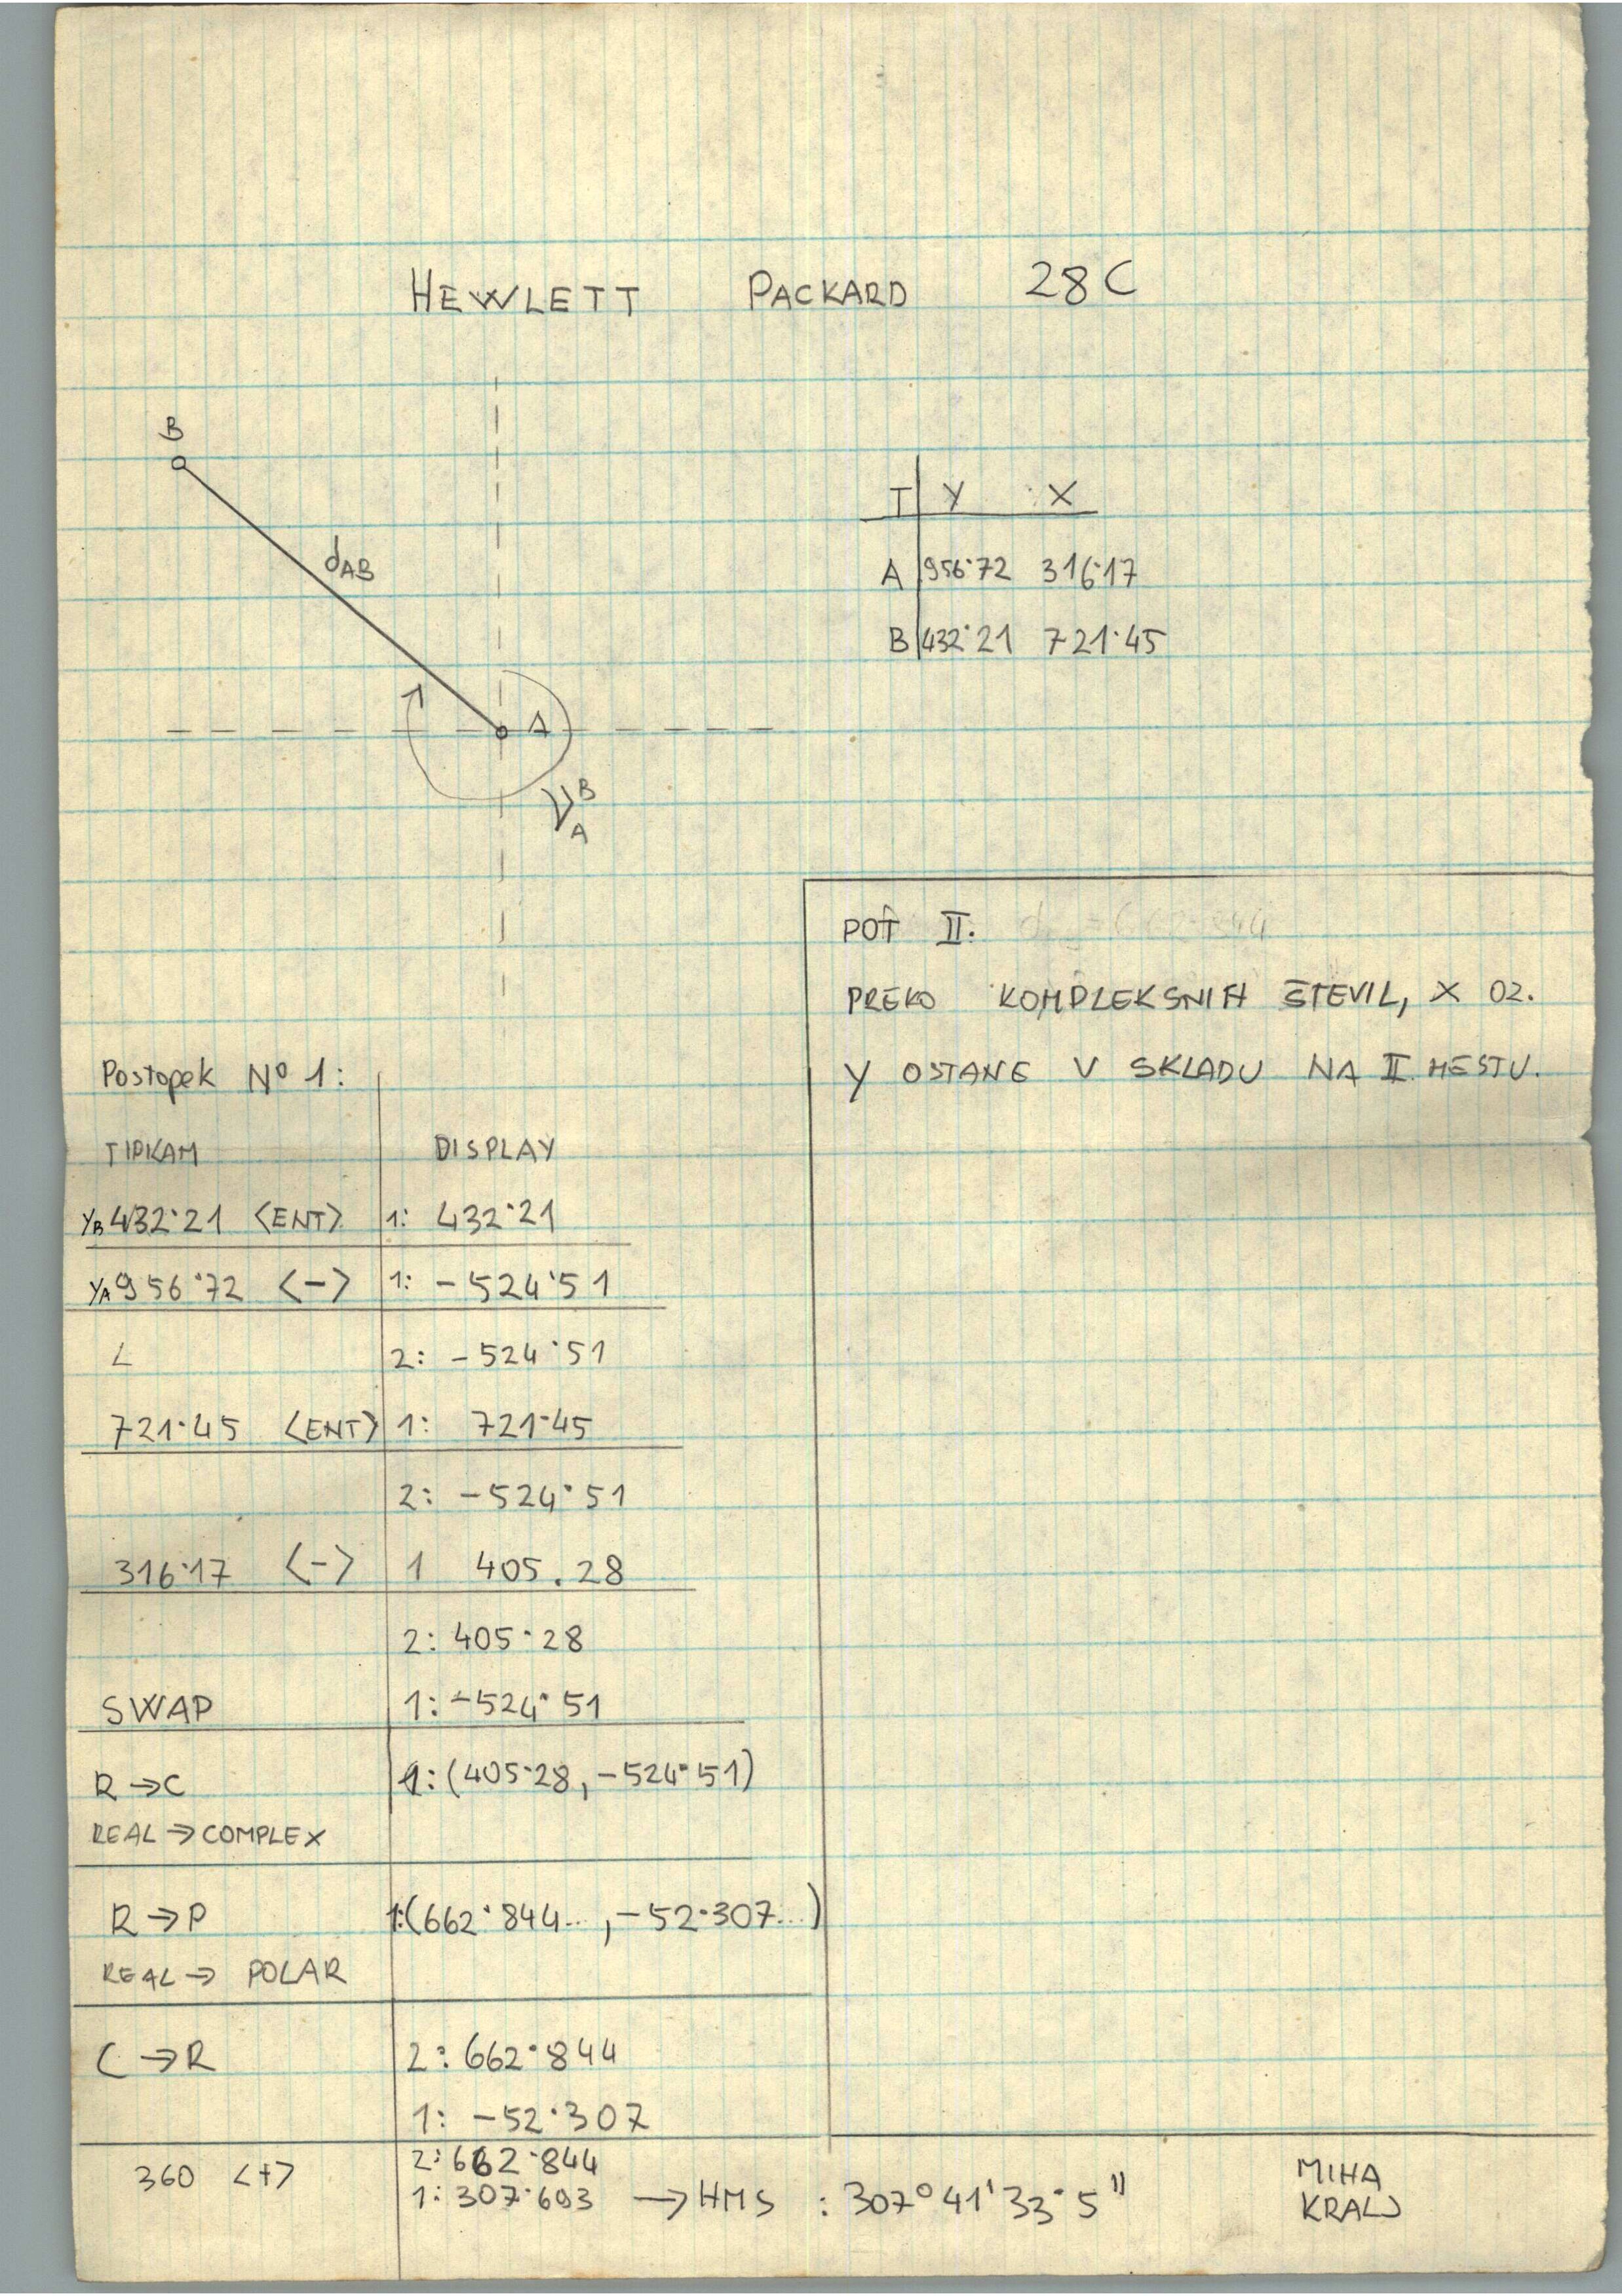 HEWLETT PACKARD 28C
B
dAB
A
νAB
T Y X
A 956·72 316·17
B 432·21 721·45
POT II:
PREKO KOMPLEKSNIH ŠTEVIL, X OZ.
Y OSTANE V SKLADU NA II MESTU.
Postopek Nº 1:
TIPKAM DISPLAY
YB 432·21 <ENT> 1: 432·21
YA 956·72 <-> 1: -524·51
2: -524·51
721·45 <ENT> 1: 721·45
2: -524·51
316·17 <-> 1 405.28
2: 405·28
SWAP 1: -524·51
R→C 1: (405·28, -524·51)
REAL → COMPLEX
R→P 1: (662·844.., -52·307...)
REAL → POLAR
C→R 2: 662·844
1: -52·307
2: 662·844
360 <+> 1: 307·693 → HMS : 307° 41' 33·5"
MIHA
KRALJ